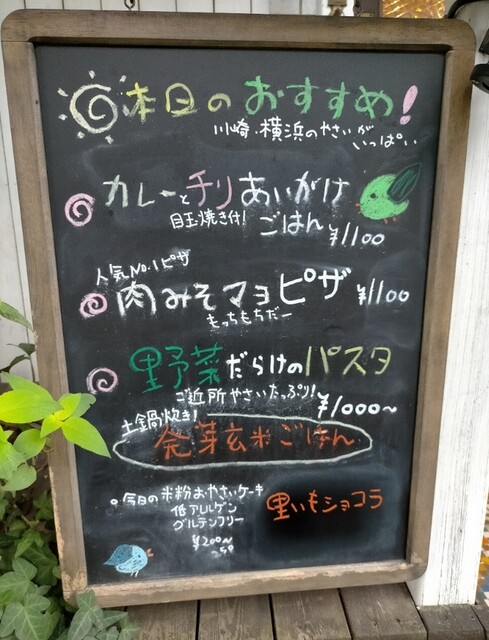 本日のおすすめ!
川崎・横浜のやさいが
いっぱい
カレーとチリあいがけ
目玉焼き付! ごはん ¥1100
人気No.1ピザ
肉みそマヨピザ ¥1100
もっちもちだー
野菜だらけのパスタ
ご近所やさいたっぷり!
¥1000〜
土鍋炊き!
発芽玄米ごはん
今日の米粉おやさいケーキ
低アレルゲン
グルテンフリー
¥200〜
250
里いもショコラ